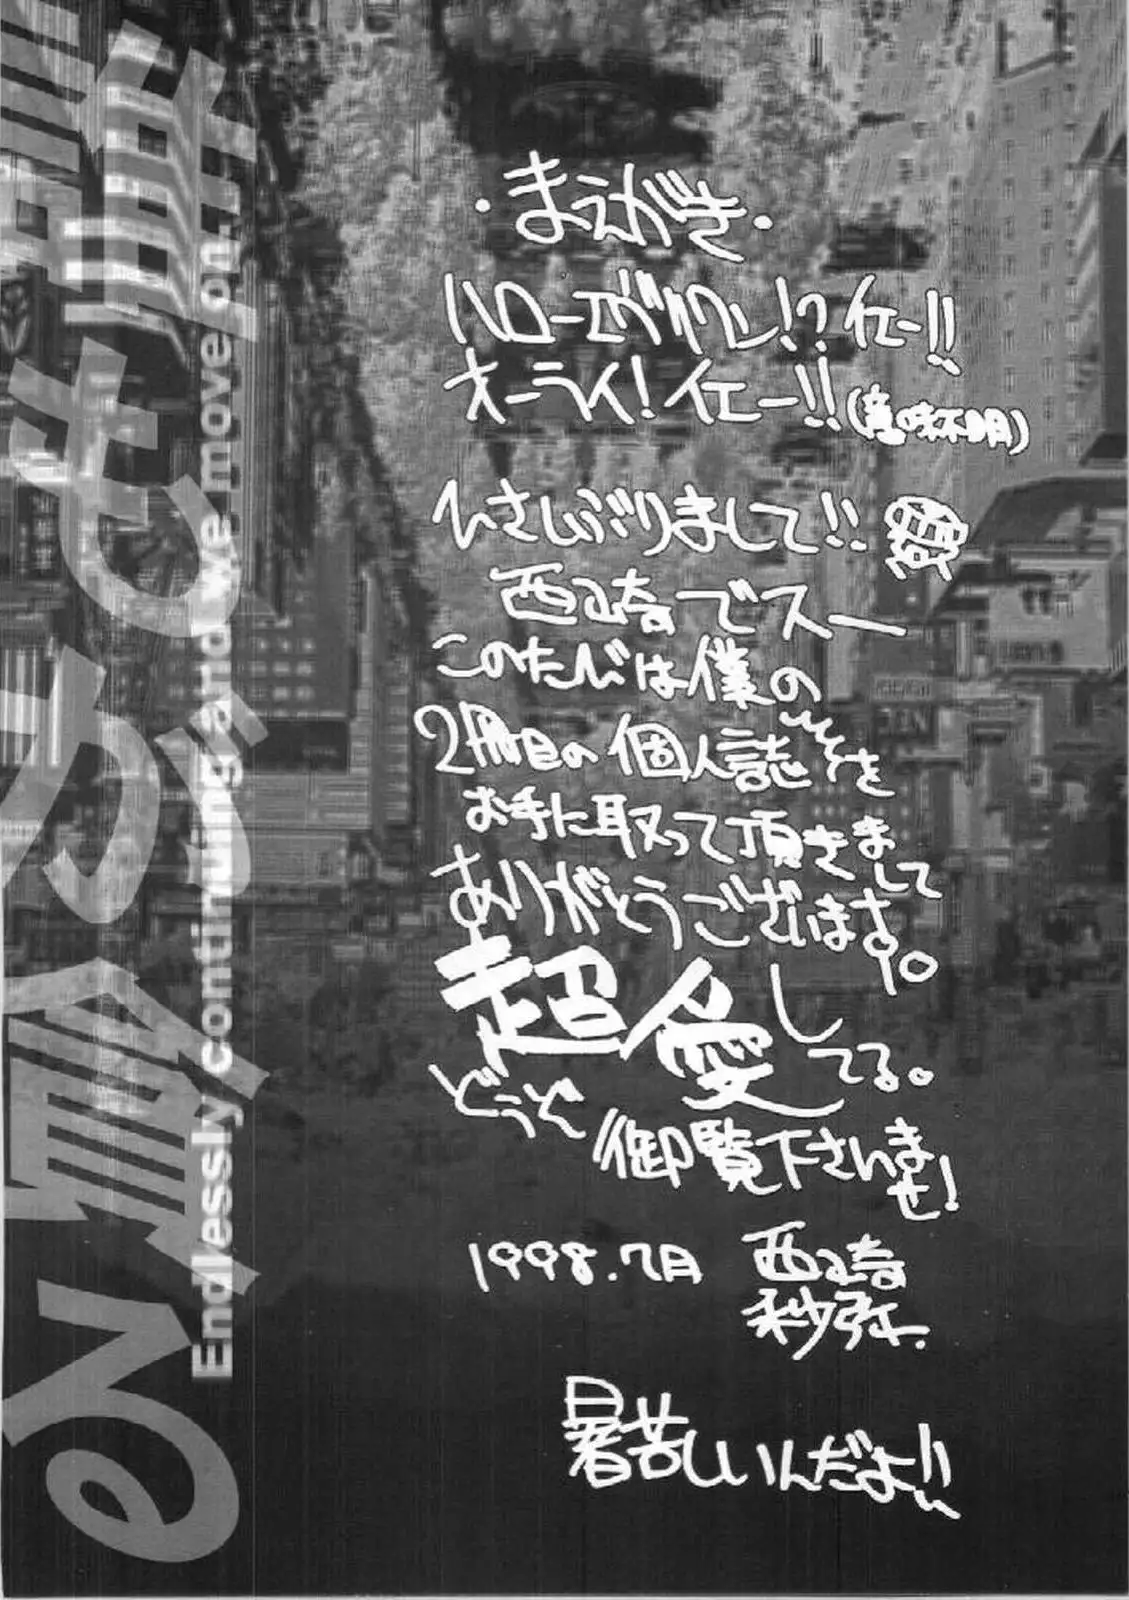 ・まえがき・
ハローエヴリワン!?イエー!!
オーライ!イエー!!(意味不明)
ひさしぶりまして!!
西崎でスー
このたびは僕の
2冊目の個人誌を
お手に取って頂きまして
ありがとうございます。
超愛してる。
どうぞ御覧下さいませ!
1998.7月 西崎
秒弥.
暑苦しいんだよぅ!!
Endlessly continuing, and we move on.